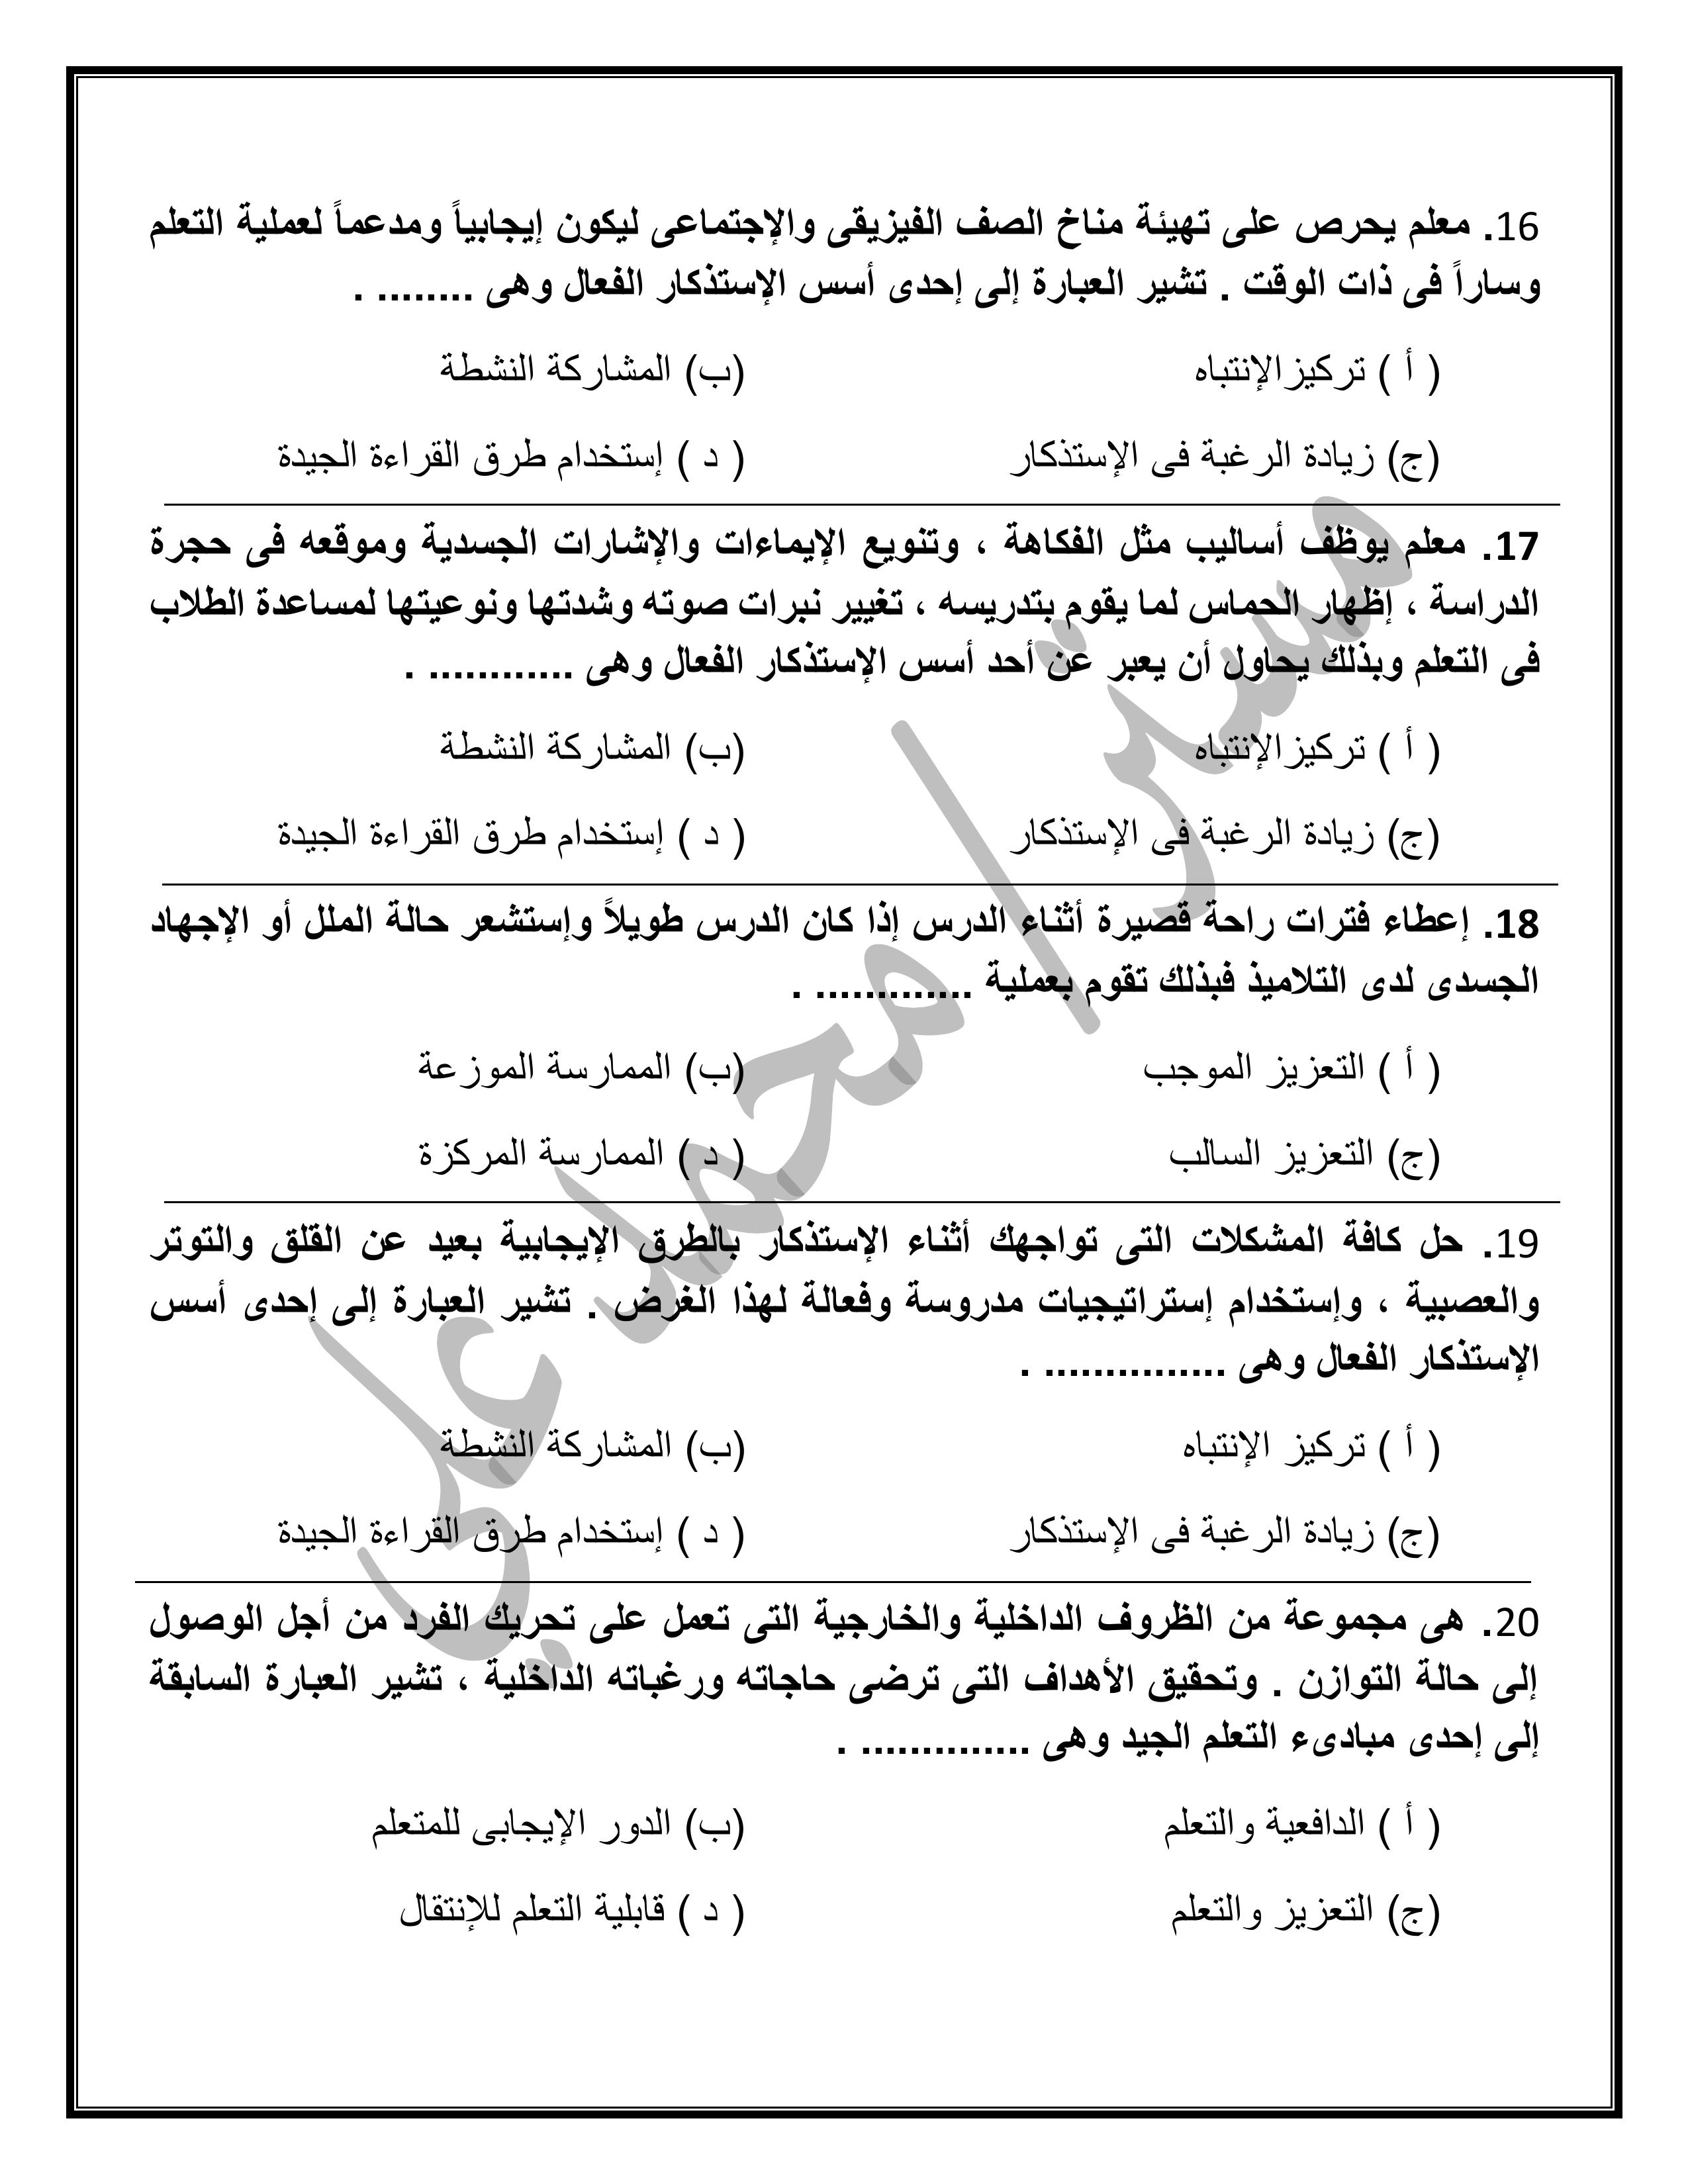 16. معلم يحرص على تهيئة مناخ الصف الفيزيقى والإجتماعى ليكون إيجابياً ومدعماً لعملية التعلم
وساراً فى ذات الوقت . تشير العبارة إلى إحدى أسس الإستذكار الفعال وهى ........ .
( أ ) تركيزالإنتباه (ب) المشاركة النشطة
(ج) زيادة الرغبة فى الإستذكار ( د ) إستخدام طرق القراءة الجيدة
17. معلم يوظف أساليب مثل الفكاهة ، وتنويع الإيماءات والإشارات الجسدية وموقعه فى حجرة
الدراسة ، إظهار الحماس لما يقوم بتدريسه ، تغيير نبرات صوته وشدتها ونوعيتها لمساعدة الطلاب
فى التعلم وبذلك يحاول أن يعبر عن أحد أسس الإستذكار الفعال وهى ............ .
( أ ) تركيزالإنتباه (ب) المشاركة النشطة
(ج) زيادة الرغبة فى الإستذكار ( د ) إستخدام طرق القراءة الجيدة
18. إعطاء فترات راحة قصيرة أثناء الدرس إذا كان الدرس طويلاً وإستشعر حالة الملل أو الإجهاد
الجسدى لدى التلاميذ فبذلك تقوم بعملية ............. .
( أ ) التعزيز الموجب (ب) الممارسة الموزعة
(ج) التعزيز السالب ( د ) الممارسة المركزة
19. حل كافة المشكلات التى تواجهك أثناء الإستذكار بالطرق الإيجابية بعيد عن القلق والتوتر
والعصبية ، وإستخدام إستراتيجيات مدروسة وفعالة لهذا الغرض . تشير العبارة إلى إحدى أسس
الإستذكار الفعال وهى ............... .
( أ ) تركيز الإنتباه (ب) المشاركة النشطة
(ج) زيادة الرغبة فى الإستذكار ( د ) إستخدام طرق القراءة الجيدة
20. هى مجموعة من الظروف الداخلية والخارجية التى تعمل على تحريك الفرد من أجل الوصول
إلى حالة التوازن . وتحقيق الأهداف التى ترضى حاجاته ورغباته الداخلية ، تشير العبارة السابقة
إلى إحدى مبادىء التعلم الجيد وهى .............. .
( أ ) الدافعية والتعلم (ب) الدور الإيجابى للمتعلم
(ج) التعزيز والتعلم ( د ) قابلية التعلم للإنتقال
مستر/ محمد علي